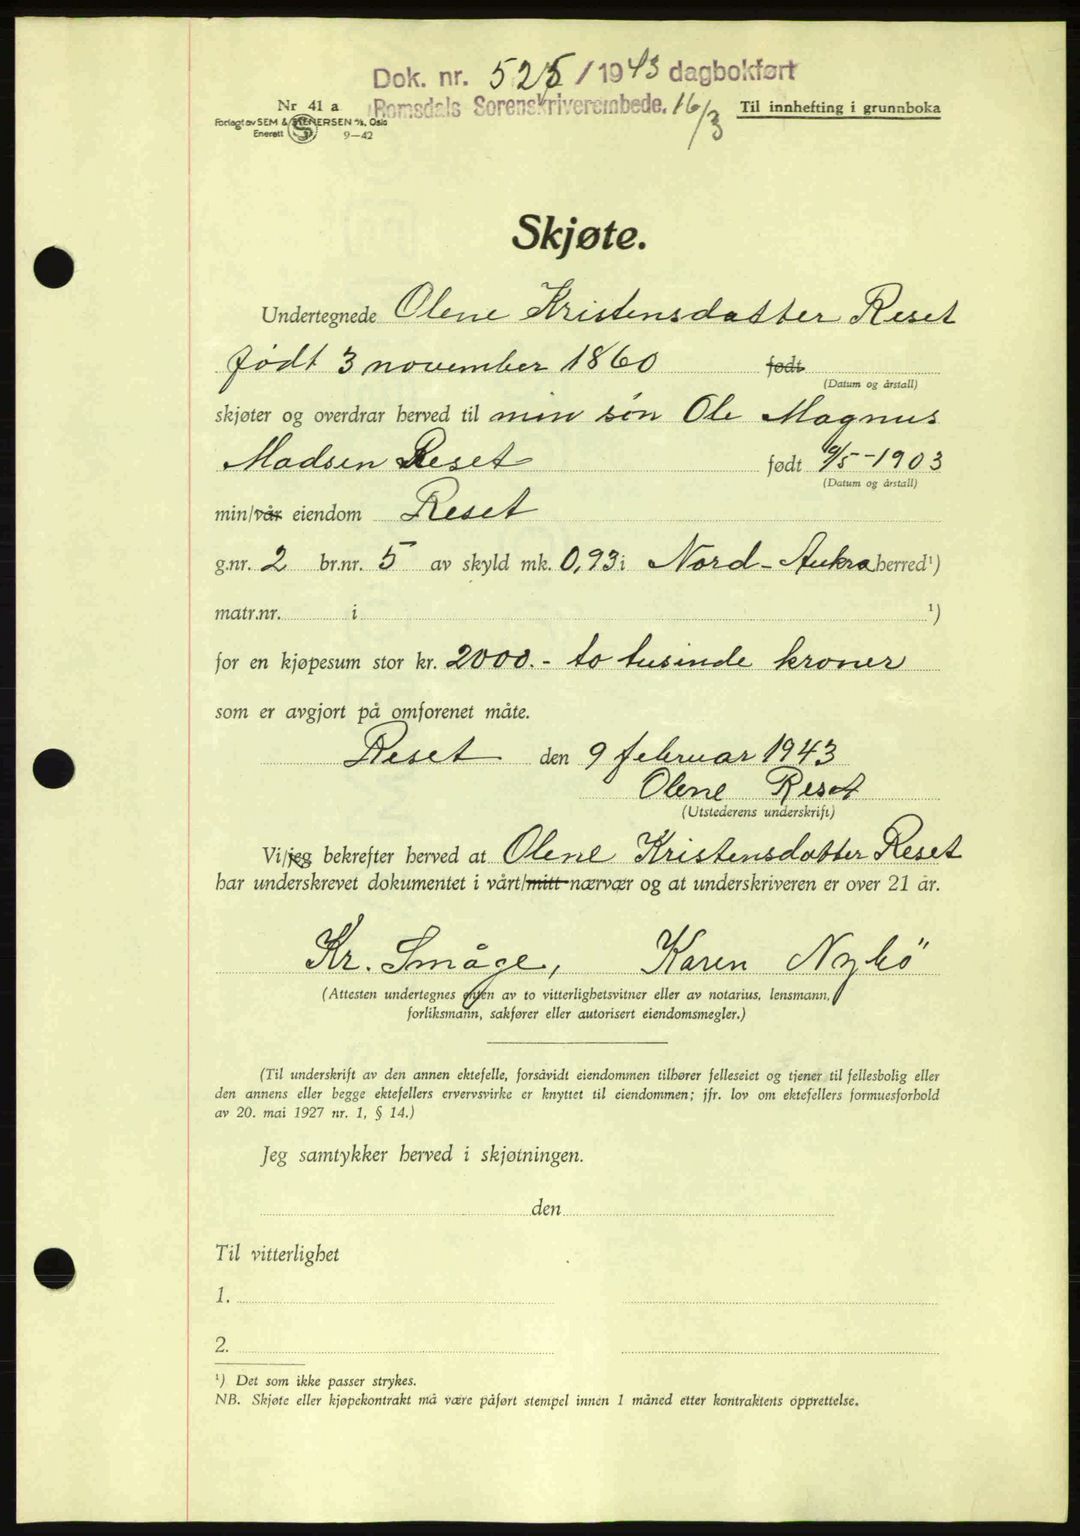 Dok. nr. 525 / 1943 dagbokført
Romsdals Sorenskriverembede. 16/3
Nr 41 a
Forlagt av SEM & STENERSEN A/S, Oslo
Enerett 9—42
Til innhefting i grunnboka
Skjøte.
Undertegnede Olene Kristensdatter Reset
født 3 november 1860 født
(Datum og årstall)
skjøter og overdrar herved til min søn Ole Magnus
Madsen Reset født 9/5-1903
(Datum og årstall)
min/vår eiendom Reset
g.nr. 2 br.nr. 5 av skyld mk. 0,93 i Nord-Aukra herred¹)
matr.nr. i ¹)
for en kjøpesum stor kr. 2000.- to tusinde kroner
som er avgjort på omforenet måte.
Reset den 9 februar 1943
Olene Reset
(Utstederens underskrift)
Vi/jeg bekrefter herved at Olene Kristensdatter Reset
har underskrevet dokumentet i vårt/mitt nærvær og at underskriveren er over 21 år.
Kr. Småge, Karen Nybö
(Attesten undertegnes enten av to vitterlighetsvitner eller av notarius, lensmann,
forliksmann, sakfører eller autorisert eiendomsmegler.)
(Til underskrift av den annen ektefelle, forsåvidt eiendommen tilhører felleseiet og tjener til fellesbolig eller
den annens eller begge ektefellers ervervsvirke er knyttet til eiendommen; jfr. lov om ektefellers formuesforhold
av 20. mai 1927 nr. 1, § 14.)
Jeg samtykker herved i skjøtningen.
den
Til vitterlighet
1.
2.
¹) Det som ikke passer strykes.
NB. Skjøte eller kjøpekontrakt må være påført stempel innen 1 måned etter kontraktens opprettelse.